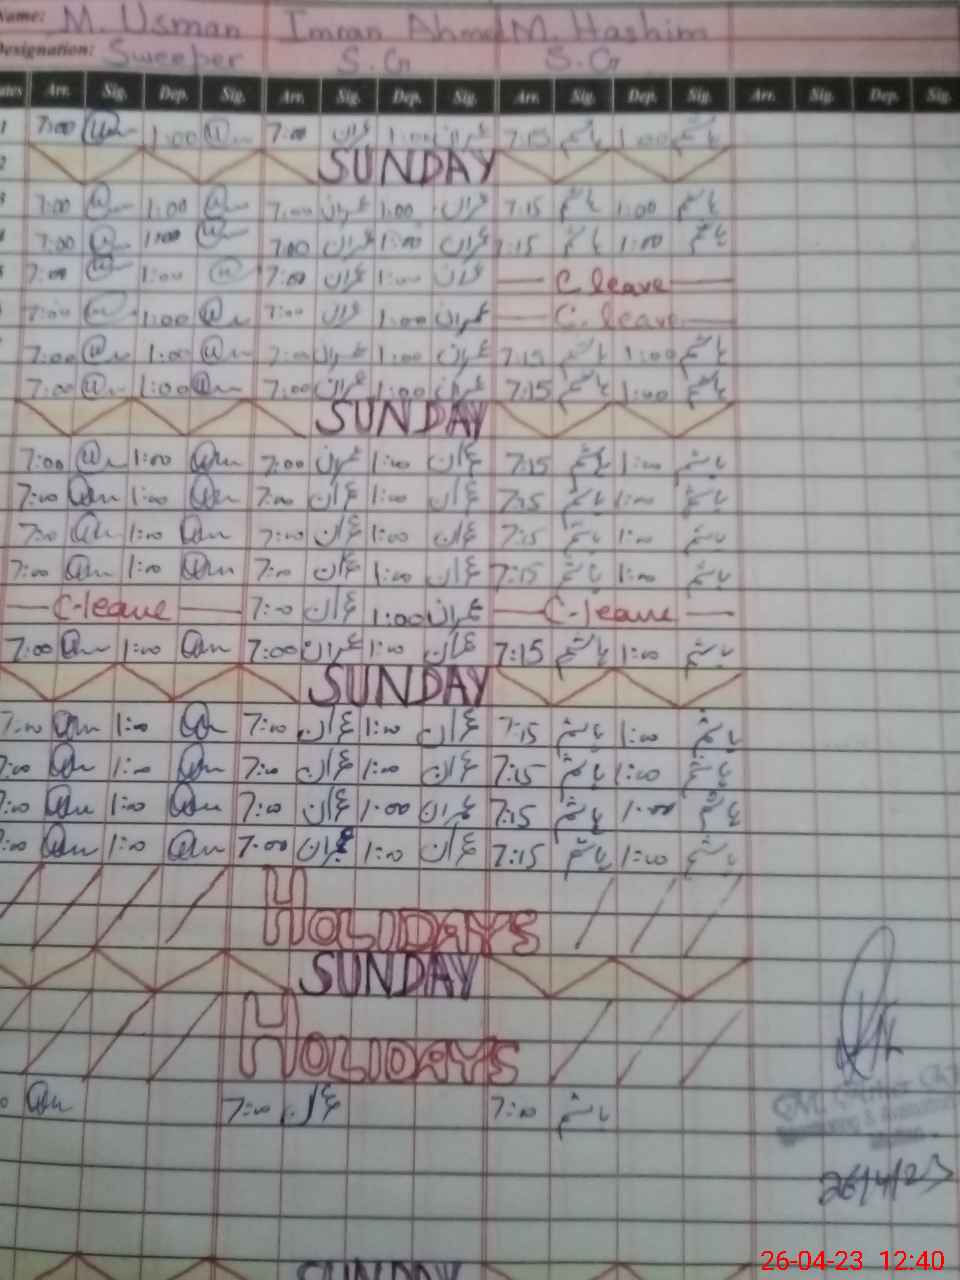 Name: M. Usman Imran Ahmed M. Hashim
Designation: Sweeper S.G S.G
Arr. Sig. Dep. Sig. Arr. Sig. Dep. Sig. Arr. Sig. Dep. Sig. Arr. Sig. Dep. Sig.
1 7:00 1:00 7:00 عمران 1:00 عمران 7:15 ہاشم 1:00 ہاشم
2 SUNDAY
3 7:00 1:00 7:00 عمران 1:00 عمران 7:15 ہاشم 1:00 ہاشم
7:00 1:00 7:00 عمران 1:00 عمران 7:15 ہاشم 1:00 ہاشم
7:00 1:00 7:00 عمران 1:00 عمران C leave
7:00 1:00 7:00 عمران 1:00 عمران C. leave
7:00 1:00 7:00 عمران 1:00 عمران 7:15 ہاشم 1:00 ہاشم
7:00 1:00 7:00 عمران 1:00 عمران 7:15 ہاشم 1:00 ہاشم
SUNDAY
7:00 1:00 7:00 عمران 1:00 عمران 7:15 ہاشم 1:00 ہاشم
7:00 1:00 7:00 عمران 1:00 عمران 7:15 ہاشم 1:00 ہاشم
7:00 1:00 7:00 عمران 1:00 عمران 7:15 ہاشم 1:00 ہاشم
7:00 1:00 7:00 عمران 1:00 عمران 7:15 ہاشم 1:00 ہاشم
C-leave 7:00 عمران 1:00 عمران C-leave
7:00 1:00 7:00 عمران 1:00 عمران 7:15 ہاشم 1:00 ہاشم
SUNDAY
7:00 1:00 7:00 عمران 1:00 عمران 7:15 ہاشم 1:00 ہاشم
7:00 1:00 7:00 عمران 1:00 عمران 7:15 ہاشم 1:00 ہاشم
7:00 1:00 7:00 عمران 1:00 عمران 7:15 ہاشم 1:00 ہاشم
7:00 1:00 7:00 عمران 1:00 عمران 7:15 ہاشم 1:00 ہاشم
HOLIDAYS
SUNDAY
HOLIDAYS
7:00 عمران 7:00 ہاشم
26/4/23
SUNDAY
26-04-23 12:40